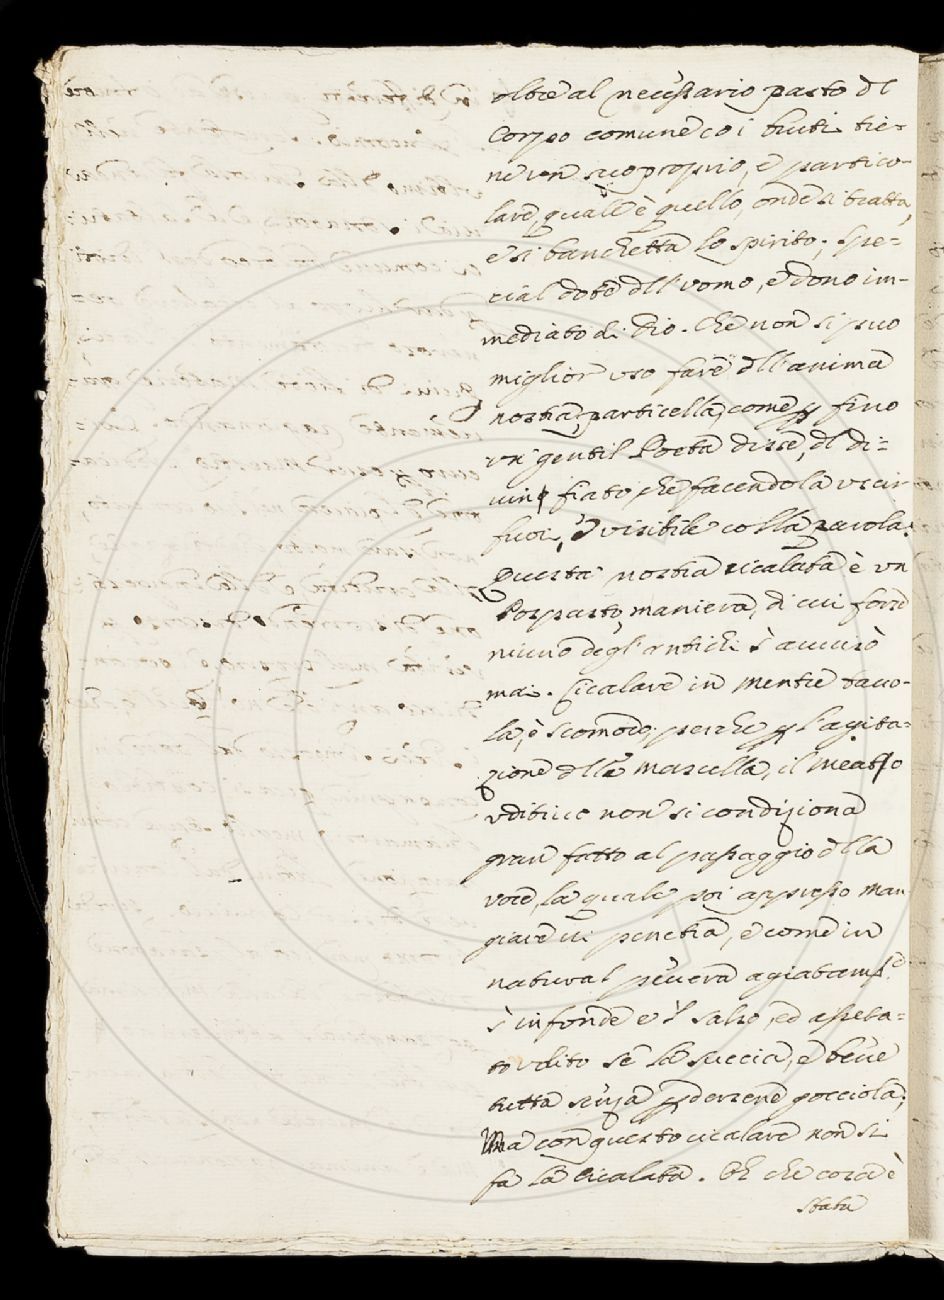 oltre al necessario pasto dl
Corpo comune co i bruti tie-
ne un suo proprio, e partico-
lare, qual' è quello, onde si tratta,
e si banchetta lo spirito; spe-
cial dote dll' vomo, e dono im-
mediato di Dio. Che non si può
miglior vso fare dll' anima
nostra, particella, come fino
vn gentil Poeta disse, dl di-
uino fiato, che facendola vscir
fuori, è visibile colla parola.
Questa nostra cicalata è vn
Pospasto, maniera, di cui forse
niuno degl' antichi s' auuisò
mai. Cicalare in mentre tauo-
la, è scomodo, perche l' agita-
zione dlla mascella, il meato
vditiuo non si condiziona
gran fatto al passaggio dlla
voce, la quale poi appresso man
giare vi penetra, e come in
natural peuera agiatam.e
s' infonde e 'l salso, ed asseta-
to vdito se la succia, e beue
tutta senza perdersene gocciola;
Ma con questo cicalare non si
fa la Cicalata. Oh che cosa è
stata